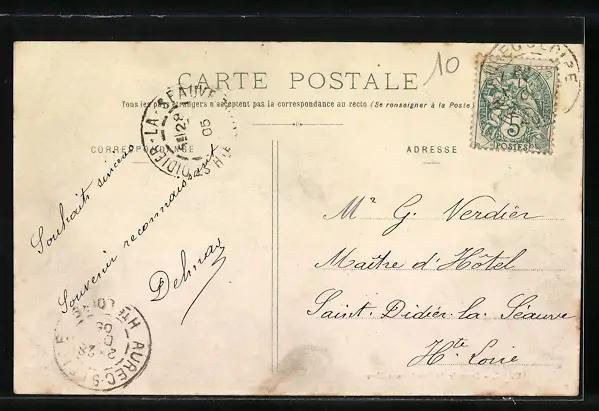 CARTE POSTALE
Tous les pays étrangers n'acceptent pas la correspondance au recto (Se renseigner à la Poste)
CORRESPONDANCE
ADRESSE
10
5c
POSTES
DIDIER-LA-SEAUVE
28
05
Hte
Souhaits sincères
Souvenir reconnaissant
Mr G. Verdier
Maître d'Hôtel
Saint-Didier-la-Séauve
Hte Loire
AUREC-S-LOIRE
28
05
Hte LOIRE